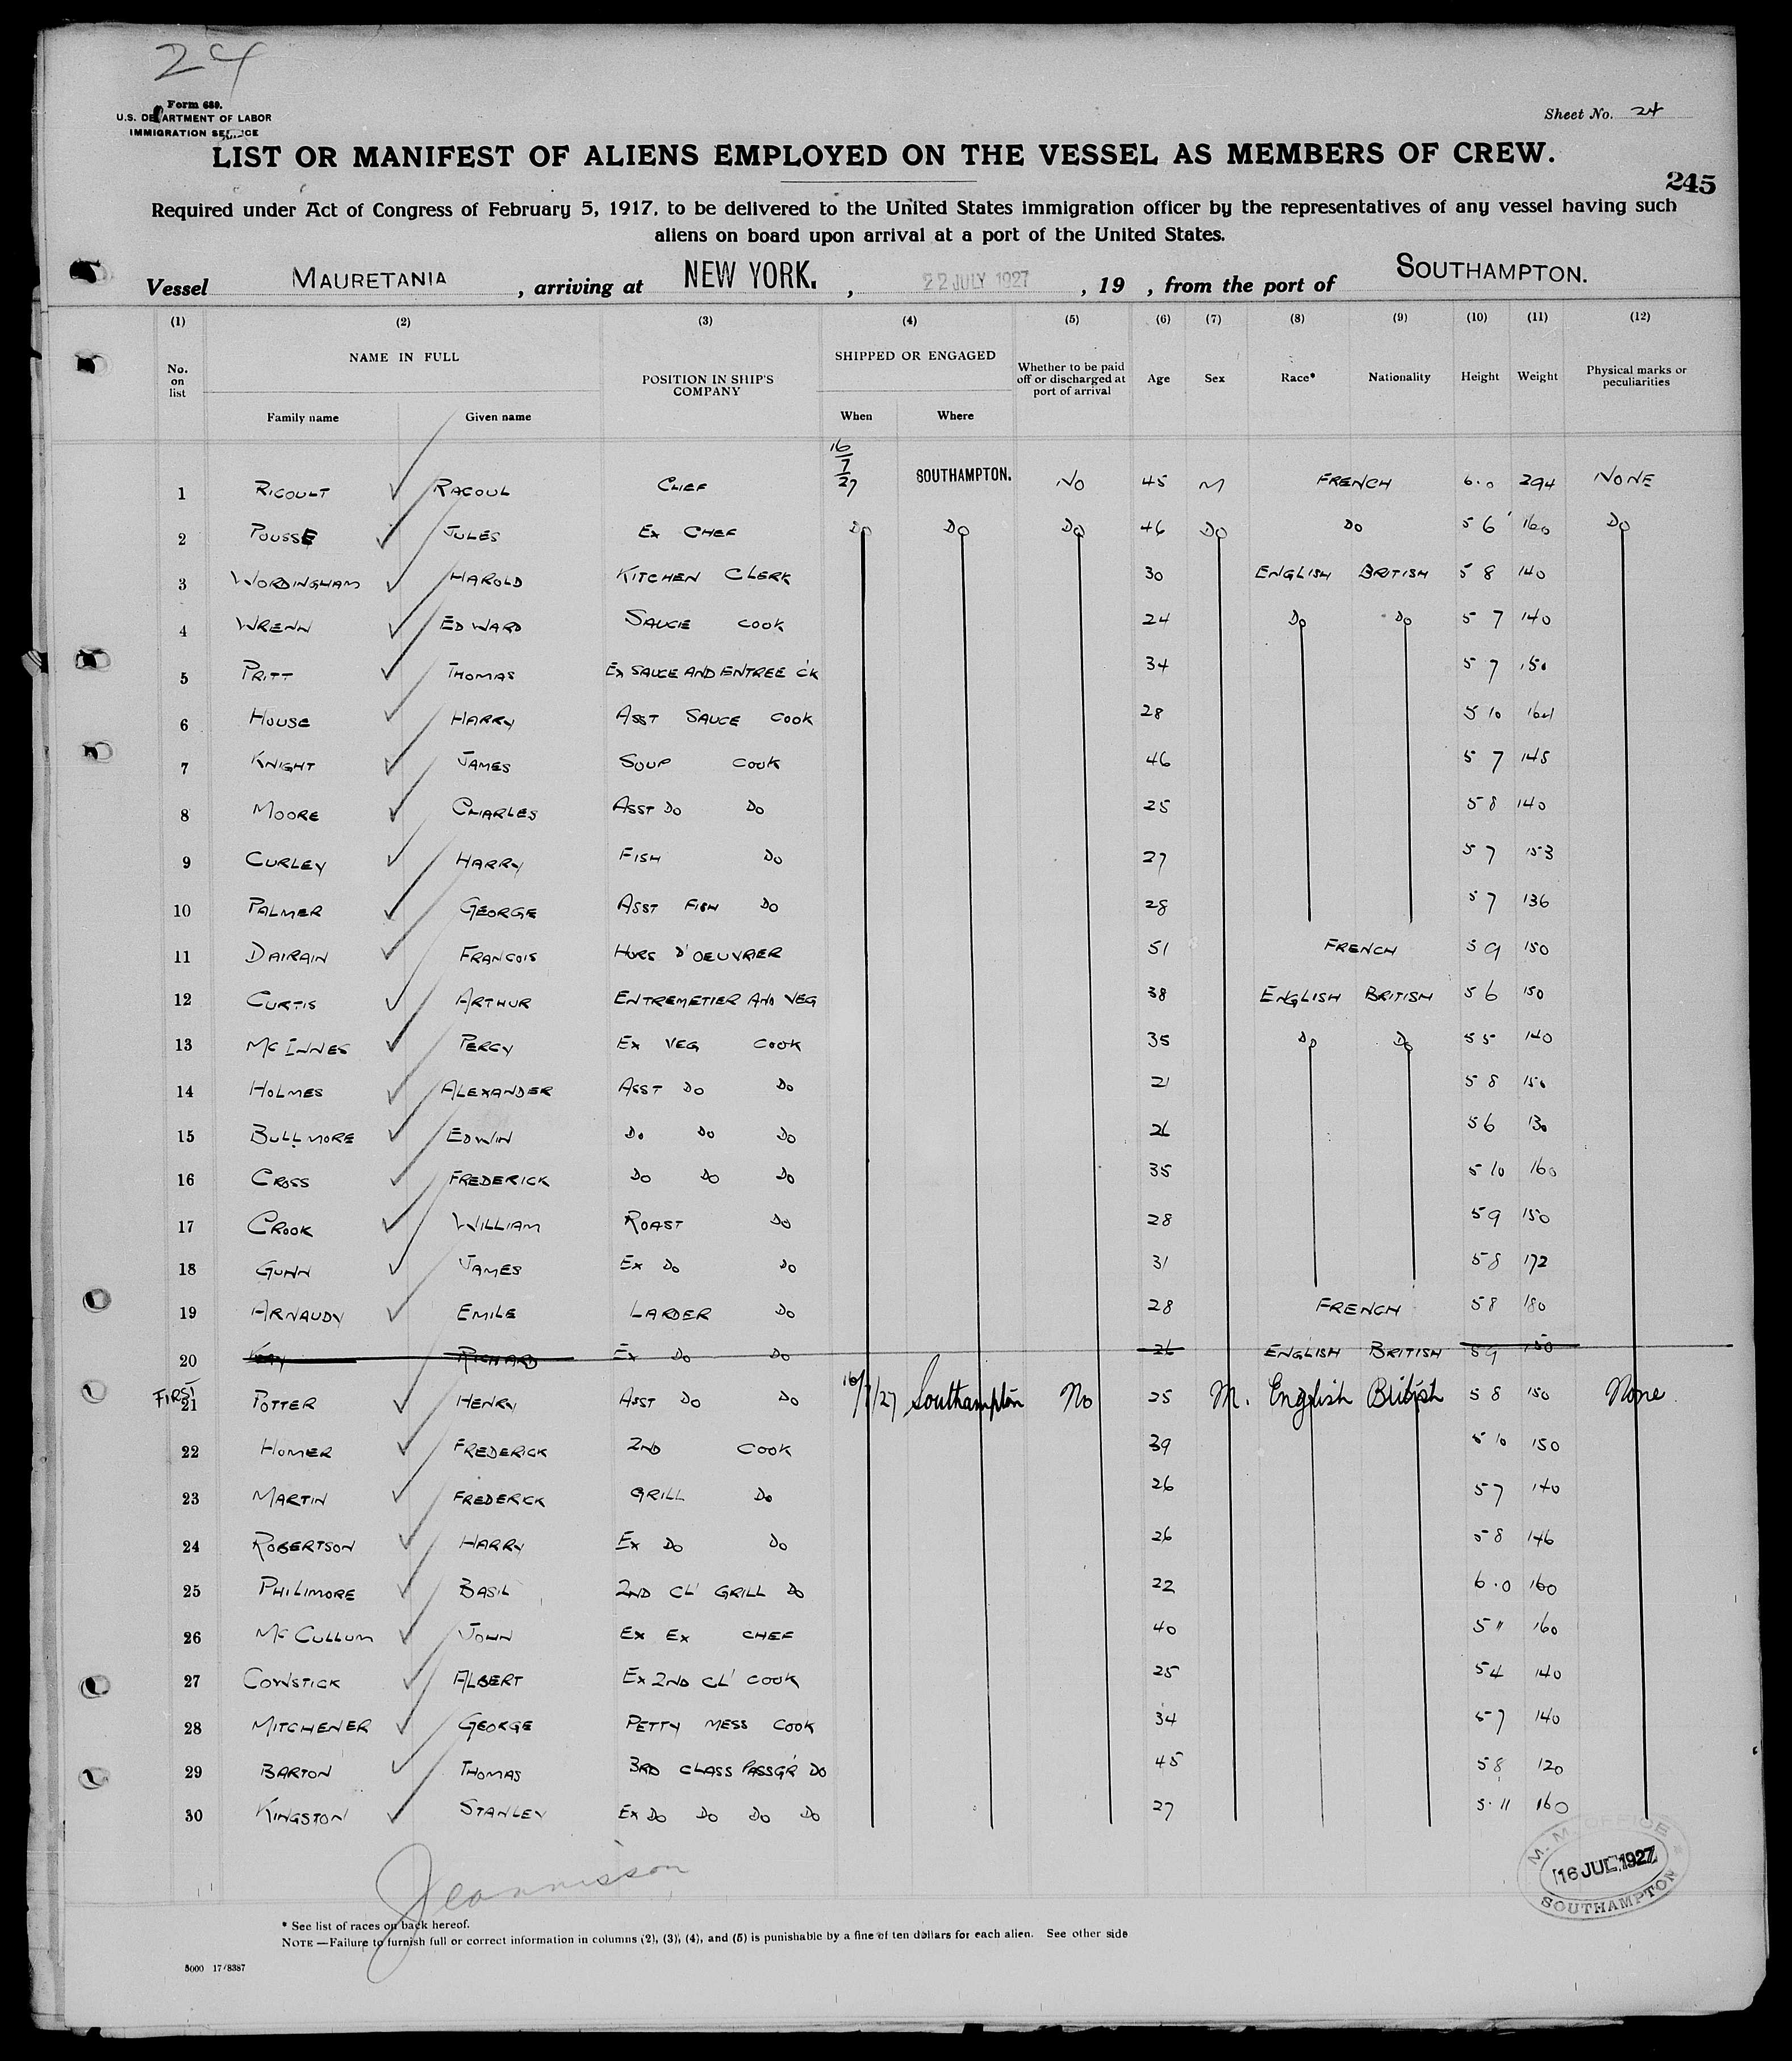 24
Form 689.
U.S. DEPARTMENT OF LABOR
IMMIGRATION SERVICE
Sheet No. 24
LIST OR MANIFEST OF ALIENS EMPLOYED ON THE VESSEL AS MEMBERS OF CREW.
245
Required under Act of Congress of February 5, 1917, to be delivered to the United States immigration officer by the representatives of any vessel having such
aliens on board upon arrival at a port of the United States.
Vessel MAURETANIA , arriving at NEW YORK. , 22 JULY 1927 , 19 , from the port of SOUTHAMPTON.
(1) (2) (3) (4) (5) (6) (7) (8) (9) (10) (11) (12)
No. on list NAME IN FULL POSITION IN SHIP'S COMPANY SHIPPED OR ENGAGED Whether to be paid off or discharged at port of arrival Age Sex Race* Nationality Height Weight Physical marks or peculiarities
Family name Given name When Where
1 RICOULT RAOOUL CHEF 16/7/27 SOUTHAMPTON. NO 45 M FRENCH 6.0 294 NONE
2 POUSSE JULES EX CHEF DO DO DO 46 DO DO 5 6 160 DO
3 WORDINGHAM HAROLD KITCHEN CLERK 30 ENGLISH BRITISH 5 8 140
4 WRENN EDWARD SAUCE COOK 24 DO DO 5 7 140
5 PRITT THOMAS EX SAUCE AND ENTREE CK 34 5 7 150
6 HOUSE HARRY ASST SAUCE COOK 28 5 10 164
7 KNIGHT JAMES SOUP COOK 46 5 7 145
8 MOORE CHARLES ASST DO DO 25 5 8 140
9 CURLEY HARRY FISH DO 27 5 7 153
10 PALMER GEORGE ASST FISH DO 28 5 7 136
11 DAIRAIN FRANCOIS HORS D'OEUVRIER 51 FRENCH 5 9 150
12 CURTIS ARTHUR ENTREMETIER AND VEG 38 ENGLISH BRITISH 5 6 150
13 MCINNES PERCY EX VEG COOK 35 DO DO 5 5 140
14 HOLMES ALEXANDER ASST DO DO 21 5 8 150
15 BULLMORE EDWIN DO DO DO 26 5 6 130
16 CROSS FREDERICK DO DO DO 35 5 10 160
17 CROOK WILLIAM ROAST DO 28 5 9 150
18 GUNN JAMES EX DO DO 31 5 8 172
19 ARNAUDY EMILE LARDER DO 28 FRENCH 5 8 180
20 KAY RICHARD EX DO DO 26 ENGLISH BRITISH 5 9 150
FIRST 21 POTTER HENRY ASST DO DO 16/7/27 Southampton No 25 M. English British 5 8 150 None
22 HOMER FREDERICK 2ND COOK 39 5 10 150
23 MARTIN FREDERCK GRILL DO 26 5 7 140
24 ROBERTSON HARRY EX DO DO 26 5 8 146
25 PHILIMORE BASIL 2ND CL' GRILL DO 22 6.0 160
26 MCCULLUM JOHN EX EX CHEF 40 5 11 160
27 COWSTICK ALBERT EX 2ND CL' COOK 25 5 4 140
28 MITCHENER GEORGE PETTY MESS COOK 34 5 7 140
29 BARTON THOMAS 3RD CLASS PASSGR DO 45 5 8 120
30 KINGSTON STANLEY EX DO DO DO DO 27 5.11 160
Jeannisson
M. M. OFFICE
16 JUL 1927
SOUTHAMPTON
* See list of races on back hereof.
NOTE —Failure to furnish full or correct information in columns (2), (3), (4), and (5) is punishable by a fine of ten dollars for each alien. See other side
5000 17/8387